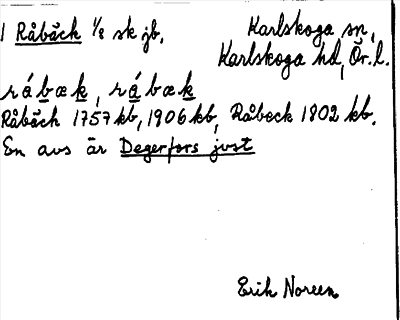 1 Råbäck 1/8 sk jb. Karlskoga sn,
Karlskoga hd, Ör. l.
råbæk, råbæk
Råbäck 1757 kb, 1906 kb, Råbeck 1802 kb.
En avs är Degerfors just
Erik Noreen